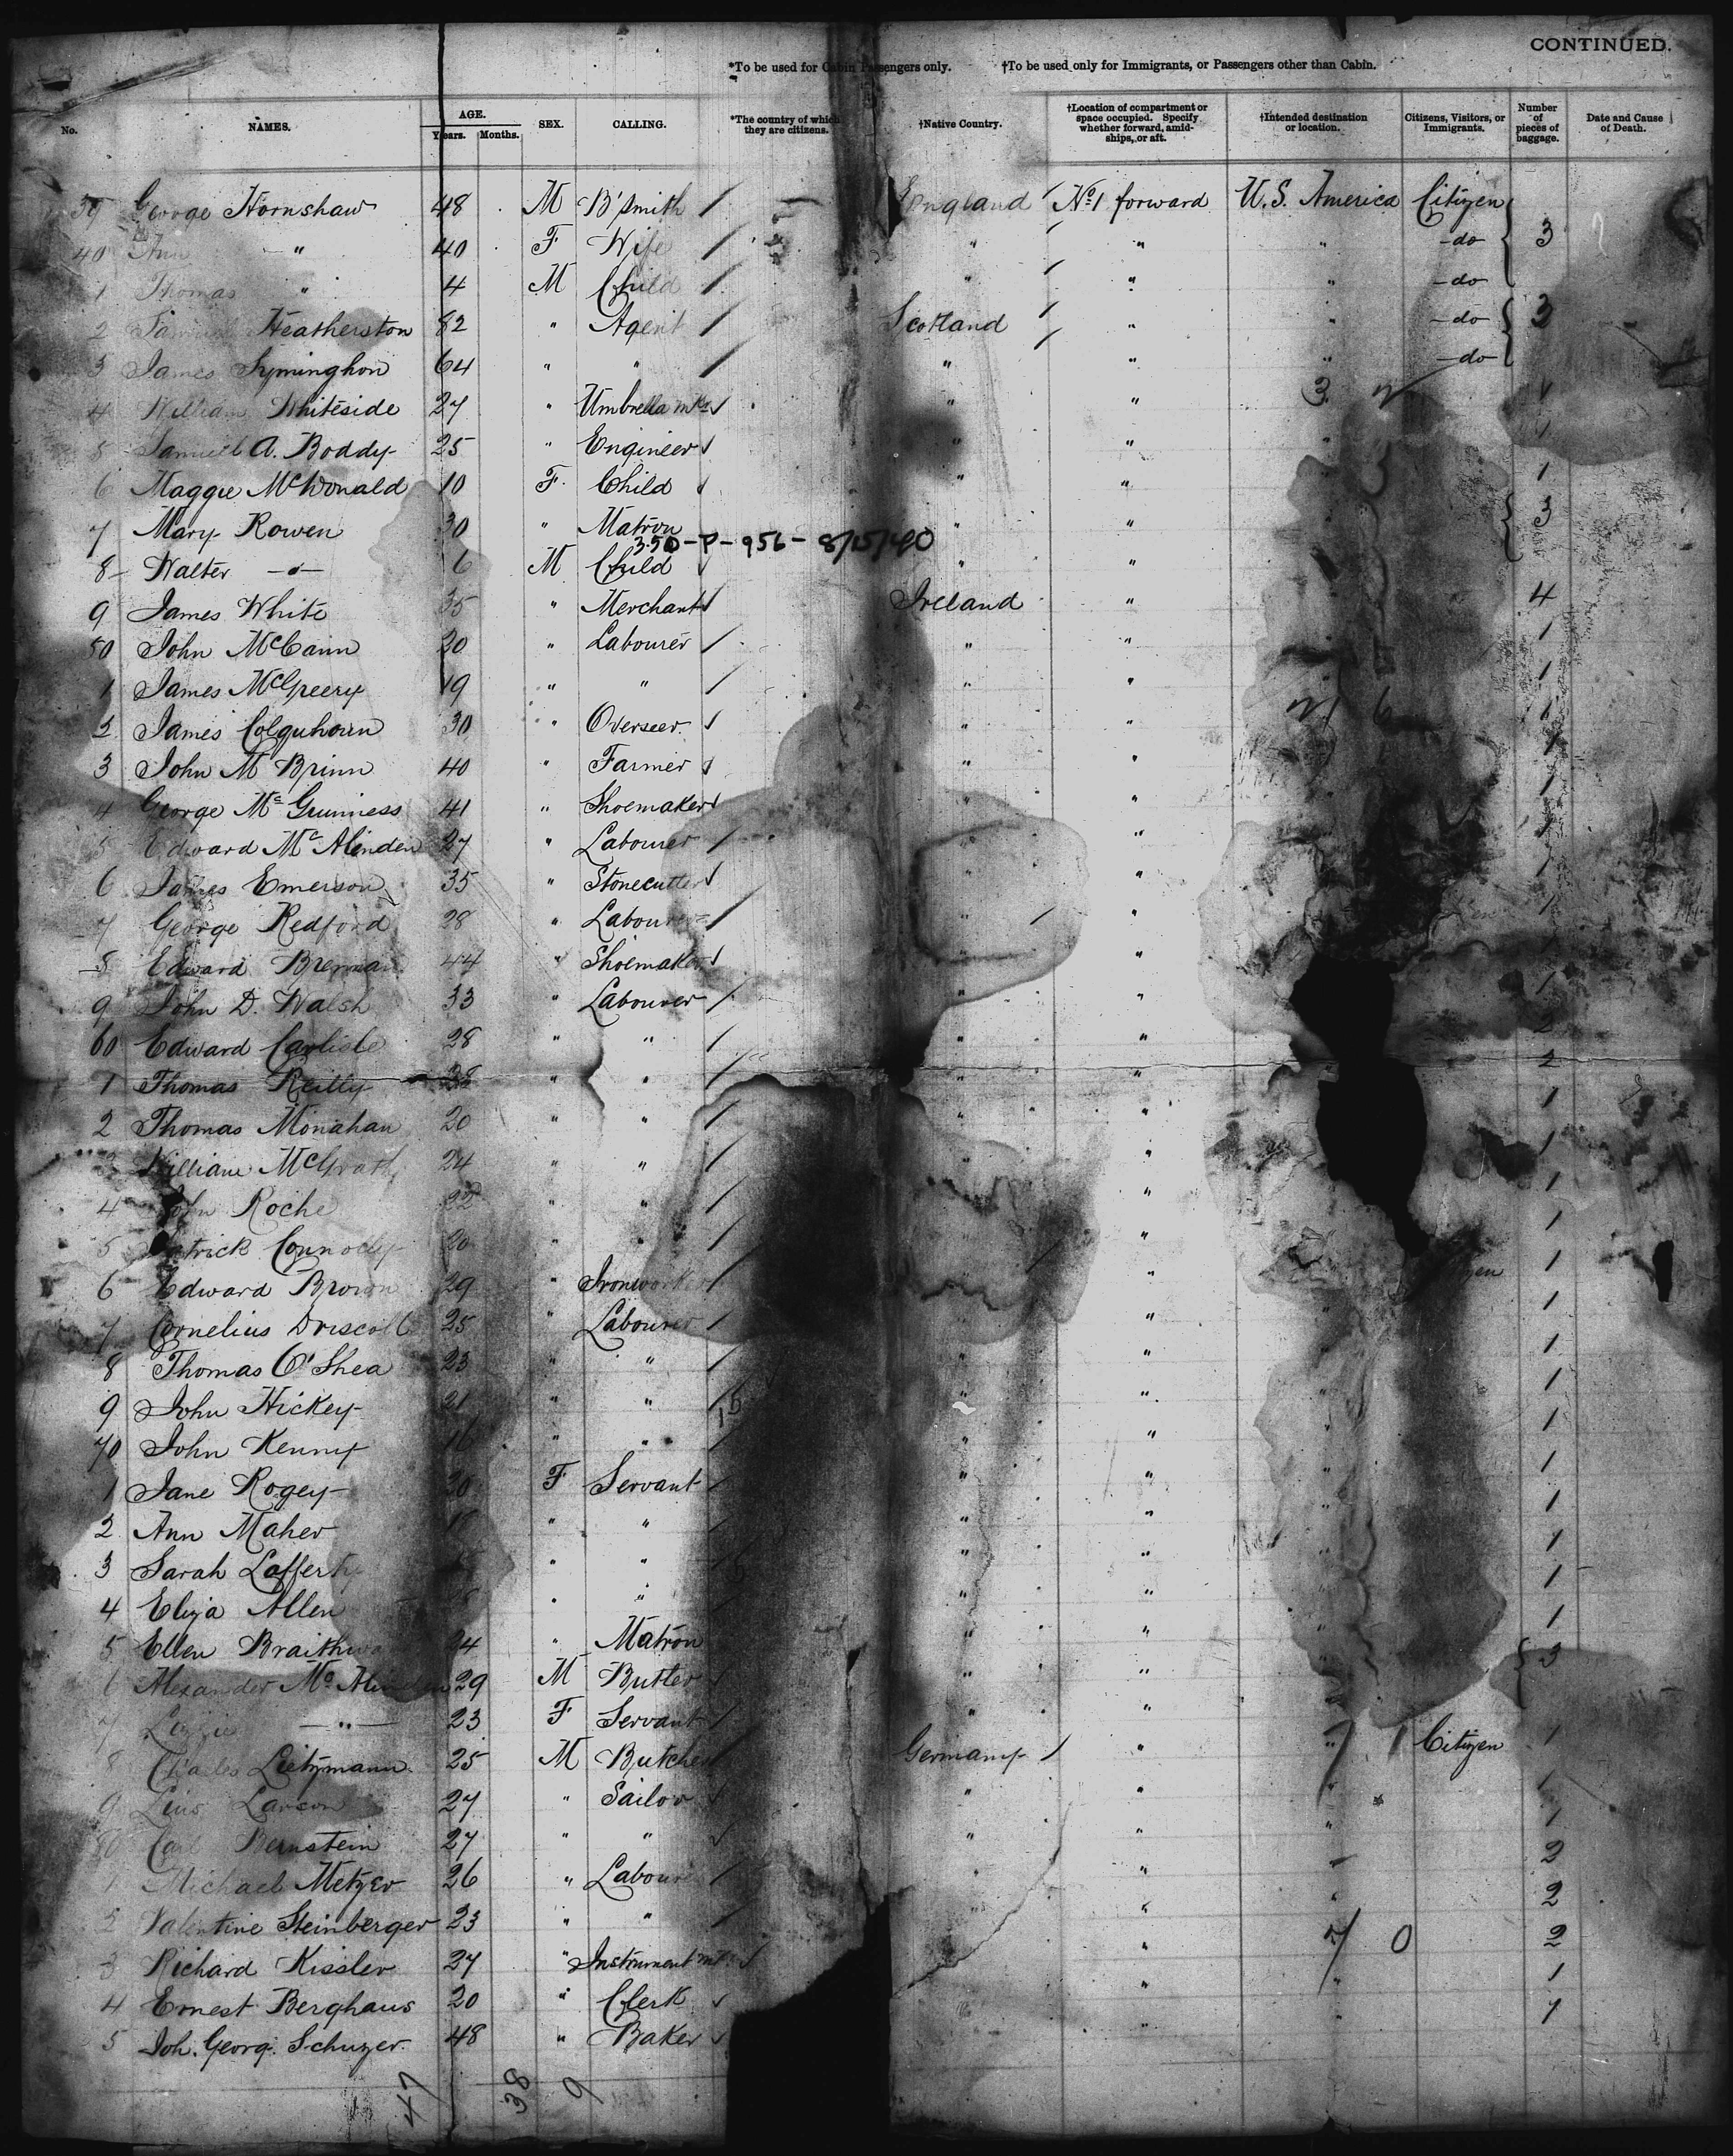 CONTINUED.
*To be used for Cabin Passengers only. †To be used only for Immigrants, or Passengers other than Cabin.
No. NAMES. AGE. Years. Months. SEX. CALLING. *The country of which they are citizens. †Native Country. †Location of compartment or space occupied. Specify whether forward, amidships, or aft. †Intended destination or location. Citizens, Visitors, or Immigrants. Number of pieces of baggage. Date and Cause of Death.
39 George Hornshaw 48 M B'smith / England / No 1 forward U.S. America Citizen
40 Ann " 40 F Wife / " / " " -do- 3
1 Thomas " 4 M Child / " / " " -do-
2 Heatherston 82 " Agent / Scotland / " " -do- 2
3 James Symington 64 " " / " / " " -do-
4 William Whiteside 27 " Umbrella mkr " " 3
5 Samuel A. Boddy 25 " Engineer " "
6 Maggie McDonald 10 F. Child " " 1
7 Mary Rowen 30 " Matron " " 3
3.50-P-956-8/15/40
8 Walter -"- 6 M Child " "
9 James White 35 " Merchant Ireland " 4
50 John McCann 20 " Labourer / " " 1
1 James McGreery 19 " " / " " 1
2 James Colquhoun 30 " Overseer " " 1
3 John M Brinn 40 " Farmer " " 1
4 George Mc Guinness 41 " Shoemaker " " 1
5 Edward Mc Alinden 27 " Labourer / " " 1
6 James Emerson 35 " Stonecutter " " 1
7 George Redford 28 " Labourer / " / " 1
8 Edward Brennan 44 " Shoemaker " " 1
9 John D. Walsh 33 " Labourer / " " 1
60 Edward Carlisle 28 " " / " " 2
1 Thomas Reilly " " / " " 2
2 Thomas Monahan 20 " " / " " 1
3 William McGrath 24 " " / " " 1
4 John Roche 22 " " / " " 1
5 Patrick Connolly 20 " " / " " 1
6 Edward Brown 29 " Ironworker / " " 1
7 Cornelius Driscoll 25 " Labourer / " " 1
8 Thomas O'Shea 23 " " / " " 1
9 John Hickey 21 " " / " " 1
70 John Kenny " " / " " 1
1 Jane Rogey 20 F Servant / " " 1
2 Ann Maher " " " " 1
3 Sarah Lafferty " " " " 1
4 Eliza Allen " " " " 1
5 Ellen 24 " Matron " " 1
6 Alexander Mc 29 M Butler " " 3
7 Lizzie -"- 23 F Servant / " "
8 Charles Lietzmann 25 M Butcher Germany / " " Citizen 1
9 Larson 27 " Sailor " " 1
80 Carl Bernstein 27 " " " " 1
1 Michael Metzer 26 " Labourer / " " 2
2 Valentine Steinberger 23 " " / " 2
3 Richard Kissler 27 " Instrument mkr " 7 0 2
4 Ernest Berghaus 20 " Clerk " 1
5 Joh. Georg. Schuzer 48 " Baker 1
47 38 9